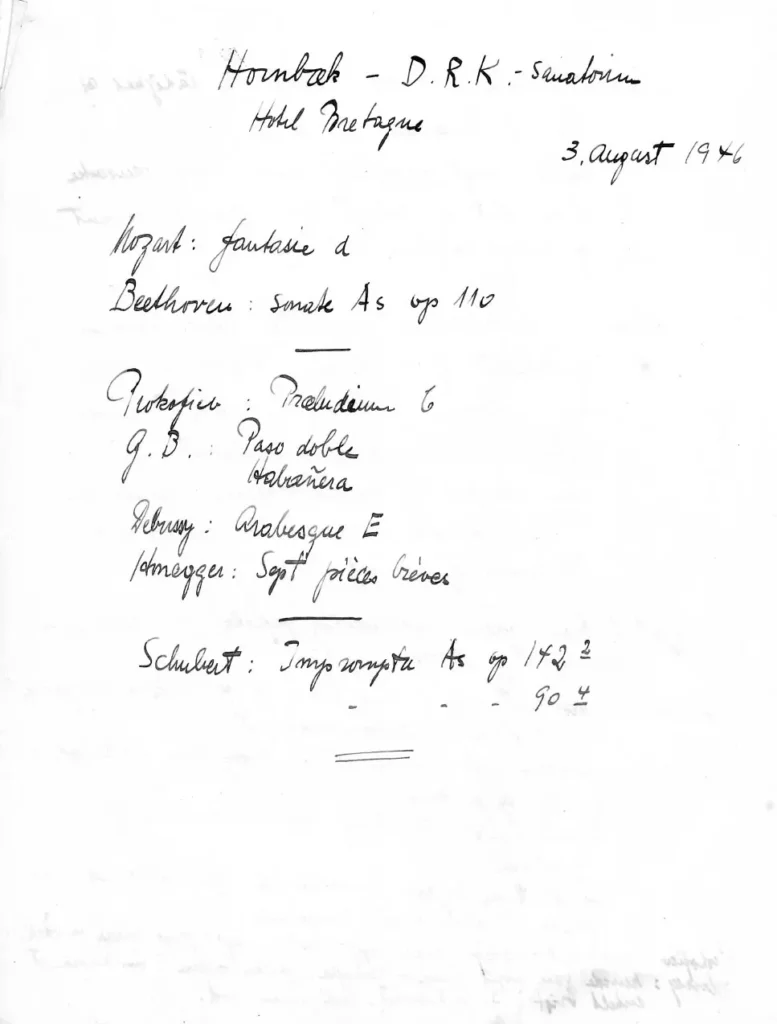 Hornbæk - D.R.K.- Sanatorium
Hotel Bretagne
3. August 1946
Mozart: Fantasie d
Beethoven: Sonate As op 110
Prokofiev: Præludium C
G.B.: Paso doble
Habañera
Debussy: Arabesque E
Honegger: Sept pièces brèves
Schubert: Impromptu As op 142 2
- - - 90 4